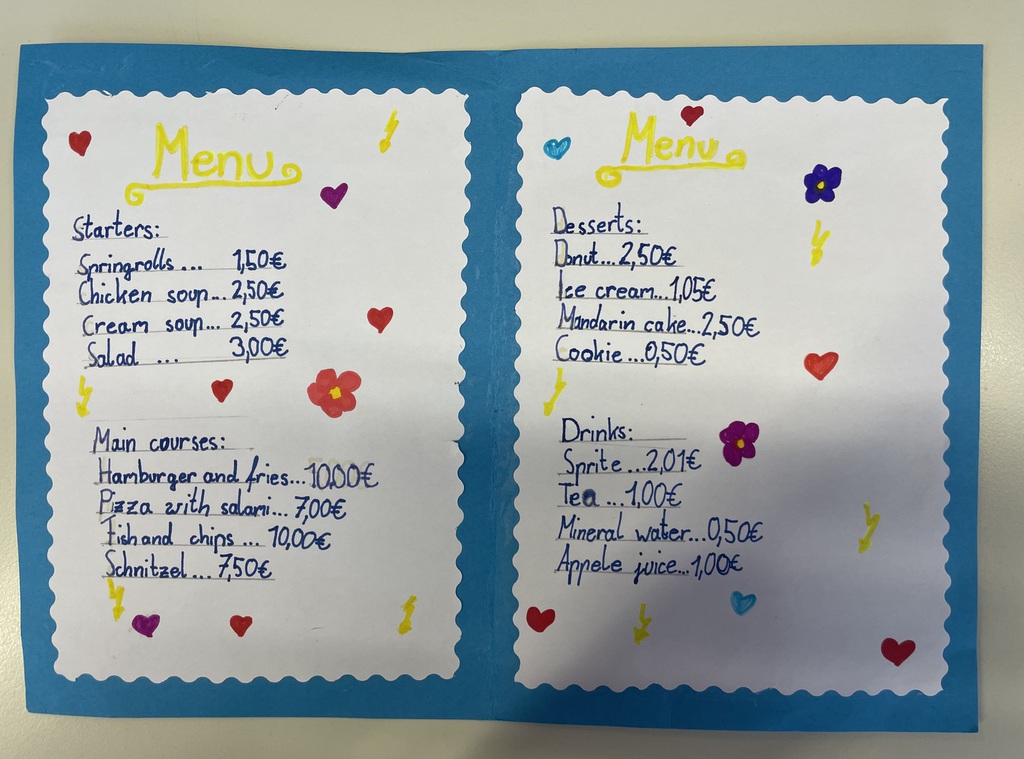 Menu
Starters:
Springrolls ... 1,50€
Chicken soup... 2,50€
Cream soup... 2,50€
Salad ... 3,00€
Main courses:
Hamburger and fries... 10,00€
Pizza with salami... 7,00€
Fish and chips ... 10,00€
Schnitzel ... 7,50€
Menu
Desserts:
Donut... 2,50€
Ice cream... 1,05€
Mandarin cake... 2,50€
Cookie ... 0,50€
Drinks:
Sprite ... 2,01€
Tea ... 1,00€
Mineral water... 0,50€
Appele juice... 1,00€